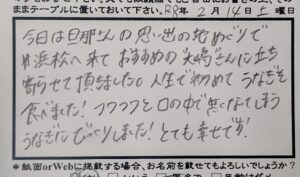 まテーブルに置いておいて下さい。R8年2月14日土曜日
今日は旦那さんの思い出の地めぐりで
浜松へ来ておすすめの"大嶋"さんに立ち
寄らせて頂きました。人生で初めてうなぎを
食べました!フワフワと口の中で無くなってしまう
うなぎにびっくりしました!とても幸せです!
*紙面orWebに掲載する場合、お名前を載せてもよろしいでしょうか?